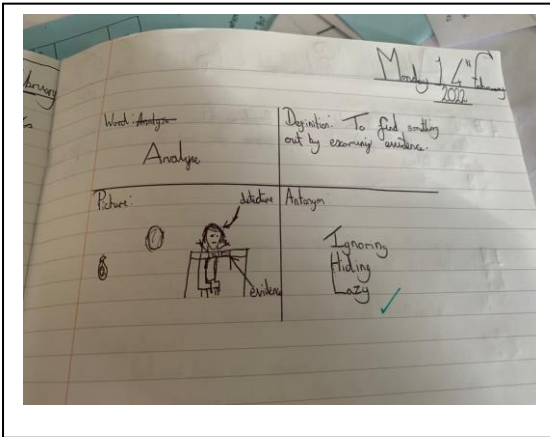 Monday 14th February
2022
Word: Analyse
Analyse
Definition: To find something
out by examining evidence.
Picture:
detective
evidence
Antonym
Ignoring
Hiding
Lazy